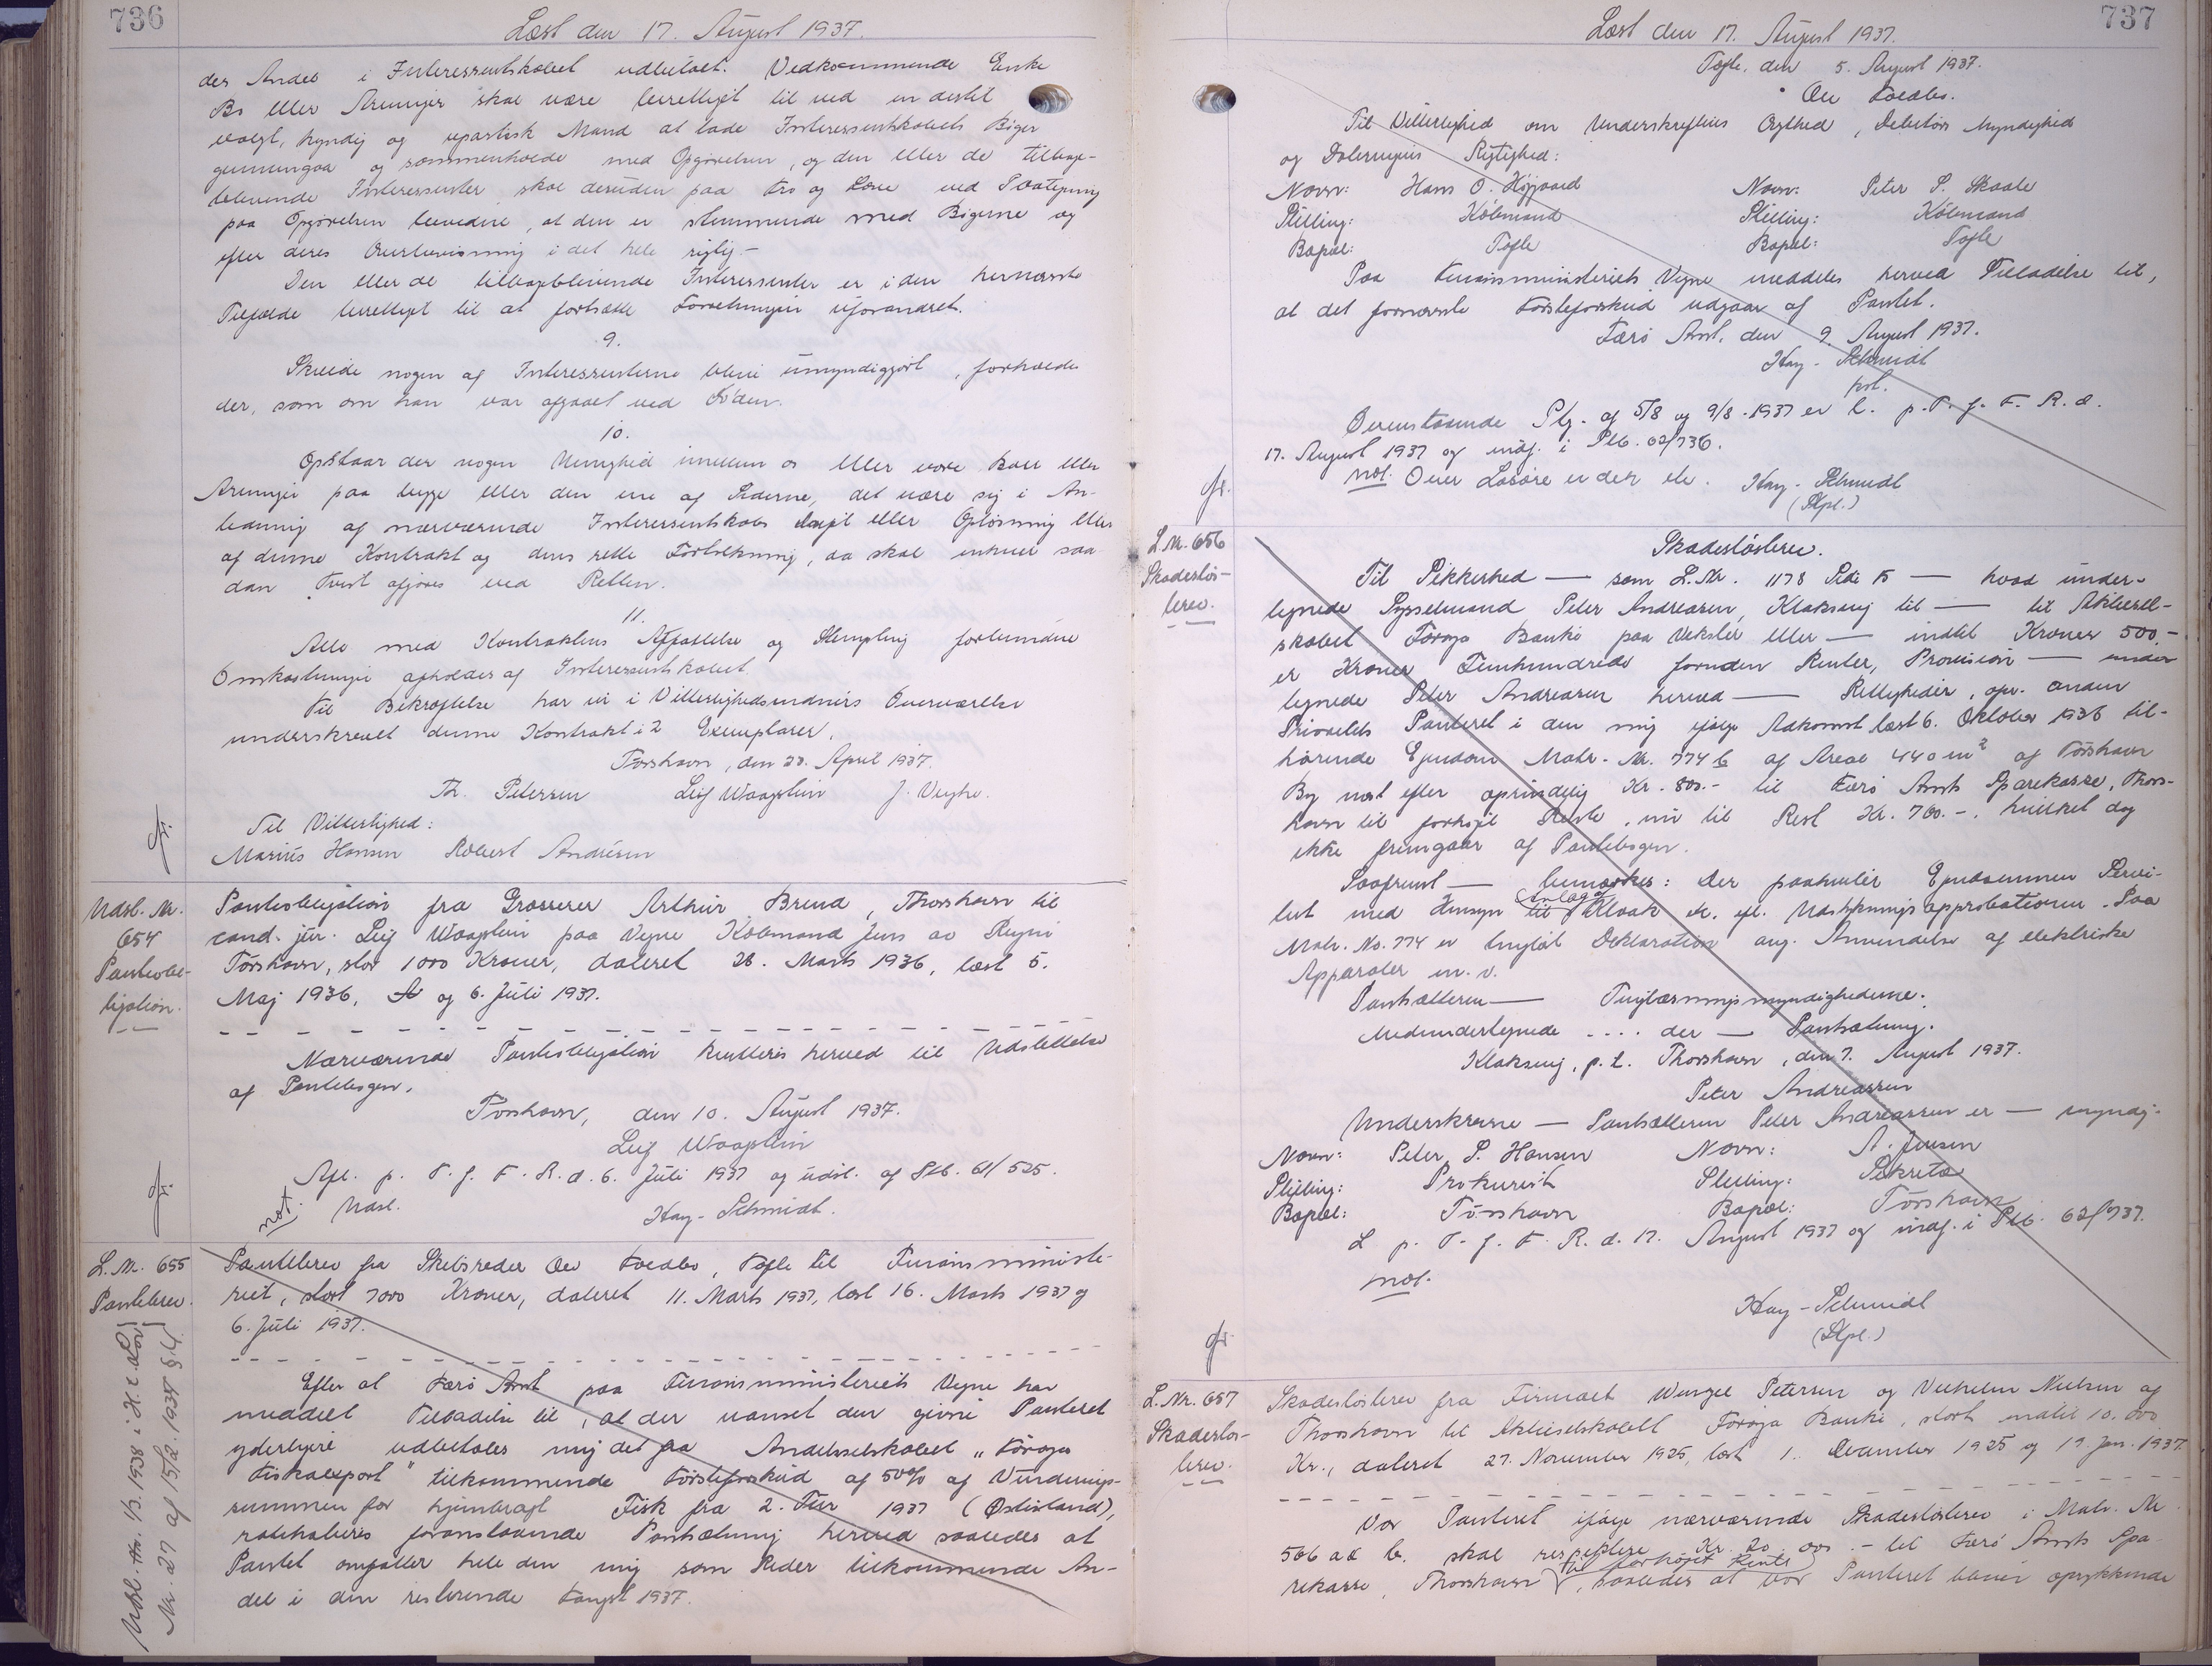 736
Læst den 17. August 1937.
des Andel i Interessentskabet udbetalt. Vedkommende Enke
Bo eller Arvinger skal være berettiget til ved en dertil
valgt, kyndig og upartisk Mand at lade Interessentskabets Bøger
gennemgaa og sammenholde med Opgørelsen, og den eller de tilbage-
blevende Interessenter skal desuden paa Tro og Love ved Paategning
paa Opgørelsen bevidne, at den er stemmende med Bøgerne og
efter deres Overbevisning i det hele rigtig.-
Den eller de tilbageblivende Interessenter er i den hernævnte
Tilfælde berettiget til at fortsætte Forretningen uforandret.
9.
Skulde nogen af Interessenterne blive umyndiggjort, forholdes
der, som om han var afgaaet ved Døden.
10.
Opstaar der nogen Uenighed imellem os eller vore Boer eller
Arvinger paa begge eller den ene af Siderne, det være sig i An-
ledning af nærværende Interessentskabs eller Opløsning eller
af denne Kontrakt og dens rette Fortolkning, da skal enhver saa
dan Tvist afgøres ved Retten.
11.
Alle med Kontraktens Affattelse og Stempling forbundne
Omkostninger afholdes af Interessentskabet.
Til Bekræftelse har vi i Vitterlighedsvidners Overværelse
underskrevet denne Kontrakt i 2 Exemplarer.
Torshavn, den 23. April 1937.
Th. Petersen Leif Waagstein J.
Til Vitterlighed:
Marius Hansen Robert Andersen
Udsl. Nr.
654
Panteobli-
gation.
Panteobligation fra Grosserer Arthur Brend, Thorshavn til
cand. jur. Leif Waagstein paa Vegne Købmand Jens av Reyni
Torshavn, stor 1000 Kroner, dateret 28. Marts 1936, læst 5.
Maj 1936, og 6. Juli 1937.
Nærværende Panteobligation kvitteres herved til Udslettelse
af Pantebogen.
Torshavn, den 10. August 1937.
Leif Waagstein
Afl. p. T. f. F. R. d. 6. Juli 1937 og udsl. af Ptb. 61/525.
not. Udsl. Hay-Schmidt.
L. Nr. 655
Pantebrev.
Udsl. Hn. 1/3. 1938 i H. t. Lov
Nr. 27 af 15/2. 1937 § 4.
Pantebrev fra Skibsreder Ole Toldbo, Tofte til Finansministe-
riet, stort 7000 Kroner, dateret 11. Marts 1937, læst 16. Marts 1937 og
6. Juli 1937.
Efter at Færø Amt paa Finansministeriets Vegne har
meddelt Tilladelse til, at der uanset den givne Panteret
yderligere udbetales mig det fra Andelsselskabet „Føroya
Fiskaexport" tilkommende Førsteforskud af 50% af Vurderings-
summen for hjembragt Fisk fra 2. Tur 1937 (Østisland),
ratihaberes foranstaaende Pantsætning herved saaledes at
Pantet omfatter hele den mig som Reder tilkommende An-
del i den resterende Fangst 1937.
737
Læst den 17. August 1937.
Tofte, den 5. August 1937.
Ole Toldbo.
Til Vitterlighed om Underskriftens Ægthed, Debitors Myndighed
og Dateringens Rigtighed:
Navn: Hans O. Højgaard Navn: Peter S. Skaale
Stilling: Købmand Stilling: Købmand
Bopæl: Tofte Bopæl: Tofte
Paa Finansministeriets Vegne meddeles herved Tilladelse til,
at det fornævnte Førsteforskud udgaar af Pantet.
Færø Amt, den 9. August 1937.
Hay-Schmidt
kst.
Ovenstaaende Ptg. af 5/8 og 9/8-1937 er l. p. T. f. F. R. d.
17. August 1937 og indf. i Ptb. 62/736.
not. Over Løsøre er der ell. Hay-Schmidt
(Stpl.)
L. Nr. 656
Skadesløs-
brev.
Skadesløsbrev.
Til Sikkerhed — som L. Nr. 1178 Side 15 — hvad under-
tegnede Sysselmand Peter Andreasen, Klaksvig til — til Aktiesel-
skabet Føroya Banki paa Veksler eller — indtil Kroner 500-
er Kroner Femhundrede foruden Renter, Provision — under
tegnede Peter Andreasen herved — Rettigheder, opr. anden
Prioritets Panteret i den mig ifølge Adkomst læst 6. Oktober 1936 til-
hørende Ejendom Matr. Nr. 774 b af Areal 440 m2 af Torshavn
By næst efter oprindelig Kr. 800.- til Færø Amts Sparekasse, Thors-
havn til forhøjet Rente, nu til Rest Kr. 760.-, hvilket dog
ikke fremgaar af Pantebogen.
Saafremt — bemærkes: Der paahviler Ejendommen Servi-
tut med Hensyn til Anlæg af Kloak m. efl. Udstykningsapprobationen. Paa
Matr. No. 774 er tinglyst Deklaration ang. Anvendelse af elektriske
Apparater m. v.
Pantsætteren — Tinglæsningsmyndighederne.
Medundertegnede .... der — Pantsætning.
Klaksvig, p. t. Thorshavn, den 7. August 1937.
Peter Andreassen
Underskrevne — Pantsætteren Peter Andreassen er — myndig.
Navn: Peter S. Hansen Navn: A. Jensen
Stilling: Prokurist Stilling: Sekretær
Bopæl: Torshavn Bopæl: Torshavn
L. p. T. f. F. R. d. 17. August 1937 og indf. i Ptb. 62/737.
not.
Hay-Schmidt
(Stpl.)
L. Nr. 657
Skadesløs-
brev.
Skadesløsbrev fra Firmaet Wenzel Petersen og Vilhelm Nielsen af
Thorshavn til Aktieselskabet Føroya Banki, stort indtil 10.000
Kr., dateret 27. November 1925, læst 1. December 1925 og 19. Jan. 1937.
Vor Panteret ifølge nærværende Skadesløsbrev i Matr. Nr.
506 a & b. skal respektere Kr. 20.000.- til Færø Amts Spa
rekasse, Thorshavn til forhøjet Rente, saaledes at vor Panteret bliver oprykkende